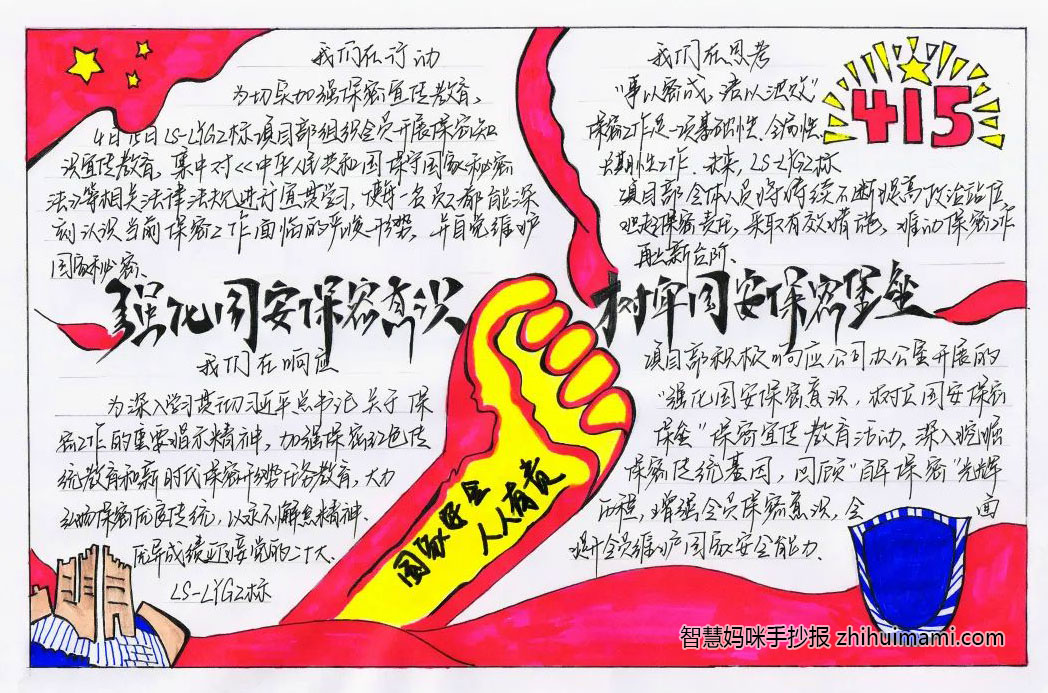 我们在行动
为切实加强保密宣传教育，
4月15日LS-LYG2标项目部组织全员开展保密知
识宣传教育，集中对<<中华人民共和国保守国家秘密
法>>等相关法律法规进行宣贯学习，使每一名员工都能深
刻认识当前保密工作面临的严峻形势，并自觉维护
国家秘密、
我们在思考
"事以密成，语以泄败"
保密工作是一项基础性、全局性、
长期性工作、未来，LS-LYG2标
项目部全体人员将持续不断提高政治站位，
担起保密责任，采取有效措施，推动保密工作
再上新台阶、
415
强化国安保密意识
树牢国安保密堡垒
我们在响应
为深入学习贯彻习近平总书记关于保
密工作的重要指示精神，加强保密红色传
统教育和新时代保密形势任务教育，大力
弘扬保密优良传统，以永不懈怠精神、
优异成绩迎接党的二十大、
LS-LYG2标
项目部积极响应公司办公室开展的
"强化国安保密意识，树立国安保密
堡垒"保密宣传教育活动、深入挖掘
保密传统基因，回顾"百年保密"光辉
历程，增强全员保密意识，全面
提升全员维护国家安全能力、
国家安全
人人有责
智慧妈咪手抄报 zhihuimami.com